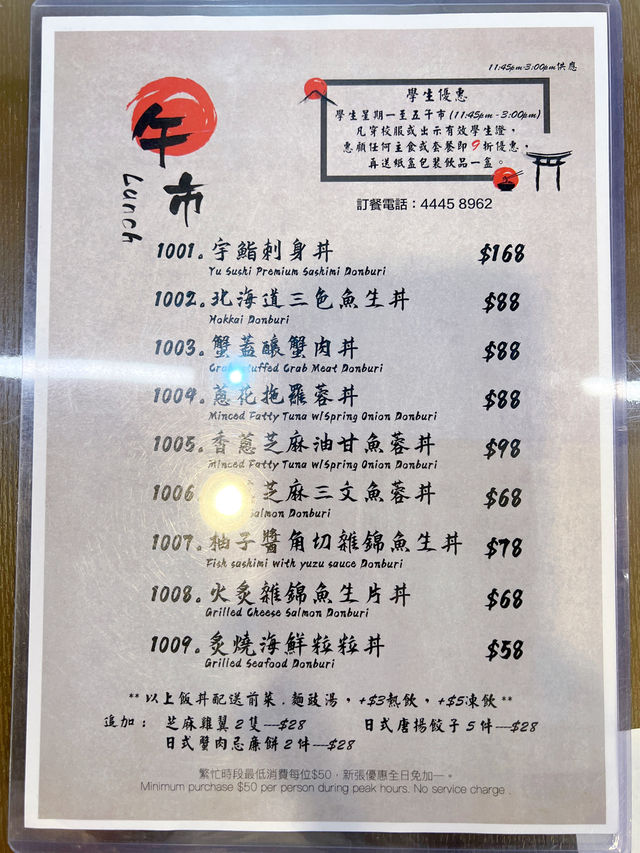 11:45pm-3:00pm供應
午市
Lunch
學生優惠
學生星期一至五午市(11:45pm-3:00pm)
凡穿校服或出示有效學生證，
惠顧任何主食或套餐即9折優惠，
再送紙盒包裝飲品一盒。
訂餐電話：4445 8962
1001。宇鮨刺身丼 $168
Yu Sushi Premium Sashimi Donburi
1002。北海道三色魚生丼 $88
Hokkai Donburi
1003。蟹蓋釀蟹肉丼 $88
Crab Stuffed Crab Meat Donburi
1004。蔥花拖羅蓉丼 $88
Minced Fatty Tuna w/Spring Onion Donburi
1005。香蔥芝麻油甘魚蓉丼 $98
Minced Fatty Tuna w/Spring Onion Donburi
1006 芝麻三文魚蓉丼 $68
Salmon Donburi
1007。柚子醬角切雜錦魚生丼 $78
Fish sashimi with yuzu sauce Donburi
1008。火炙雜錦魚生片丼 $68
Grilled Cheese Salmon Donburi
1009。炙燒海鮮粒粒丼 $58
Grilled Seafood Donburi
**以上飯丼配送前菜.麵豉湯，+$3熱飲，+$5凍飲**
追加： 芝麻雞翼2隻---$28 日式唐揚餃子5件---$28
日式蟹肉忌廉餅2件---$28
繁忙時段最低消費每位$50，新張優惠全日免加一。
Minimum purchase $50 per person during peak hours. No service charge .